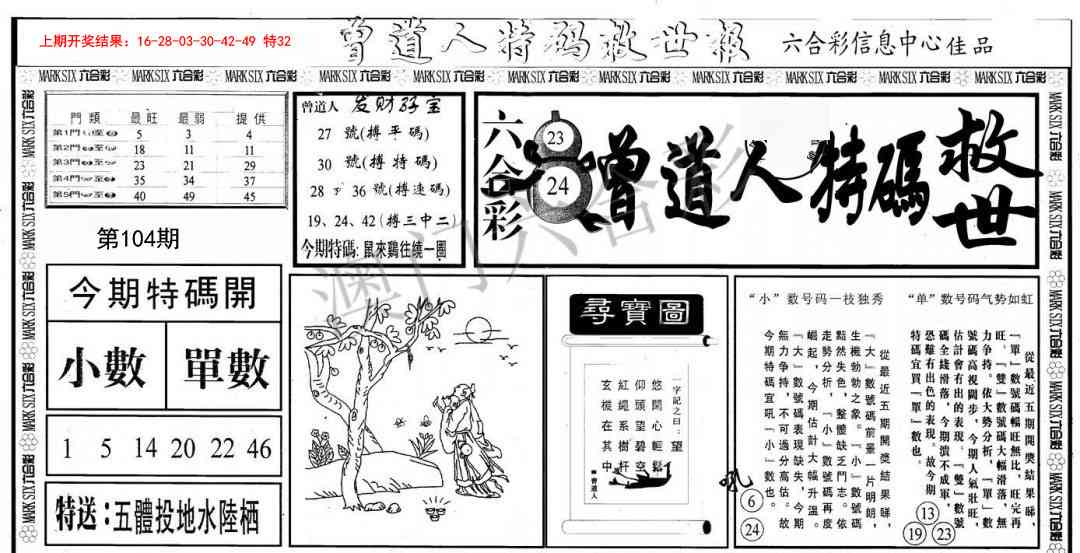 上期开奖结果：16-28-03-30-42-49 特32
曾道人特码救世报
六合彩信息中心佳品
MARK SIX 六合彩 MARK SIX 六合彩 MARK SIX 六合彩 MARK SIX 六合彩 MARK SIX 六合彩 MARK SIX 六合彩 MARK SIX 六合彩 MARK SIX 六合彩 MARK SIX 六合彩 MARK SIX 六合彩 MARK SIX 六合彩
門類 最旺 最弱 提供
第1門 5 3 4
第2門 18 11 11
第3門 23 21 29
第4門 35 34 37
第5門 40 49 45
第104期
曾道人
27 號(搏平碼)
30 號(搏特碼)
28 36 號(搏連碼)
19、24、42(搏三中二)
今期特碼:鼠來鷄往繞一圈
六合彩
23
24
曾道人特碼
救世
今期特碼開
小數 單數
1 5 14 20 22 46
特送:五體投地水陸栖
尋寶圖
一字記之曰:望
悠閑心輕鬆
仰頭望碧空
紅繩系樹杆
玄機在其中
曾道人
“小”数号码一枝独秀
從最近五期開獎結果睇，
『大』數號碼前景一片明朗，
生機勃勃之象。『小』數號碼
黯然失色，整體缺乏鬥志。依
走勢分析，『小』數號碼再度
崛起，今期估計大幅升溫。
『大』數號碼表現缺失，今期
無力争持，不可過分高估。故
今期特碼宜吼『小』數也。
吼
6
24
“单”数号码气势如虹
從最近五期開獎結果睇，
『單』數號碼暢旺無比，旺完再
旺。『雙』數號碼大幅滑落，無
力争持。依大勢分析，『單』數
號碼高視闊步，今期人氣壯旺，
估計會有出的表現。『雙』數號
碼全綫滑落，今期潰不成軍，
恐難有出色的表現。故今期
特碼宜買『單』數也。
13
19
23
澳门六合彩